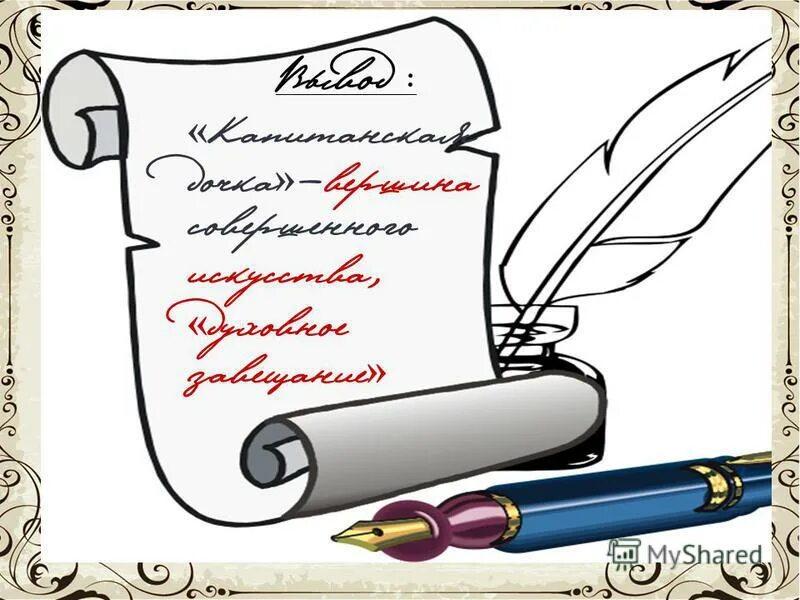 Вывод :
«Капитанская
дочка»–вершина
совершенного
искусства,
«духовное
завещание»
MyShared